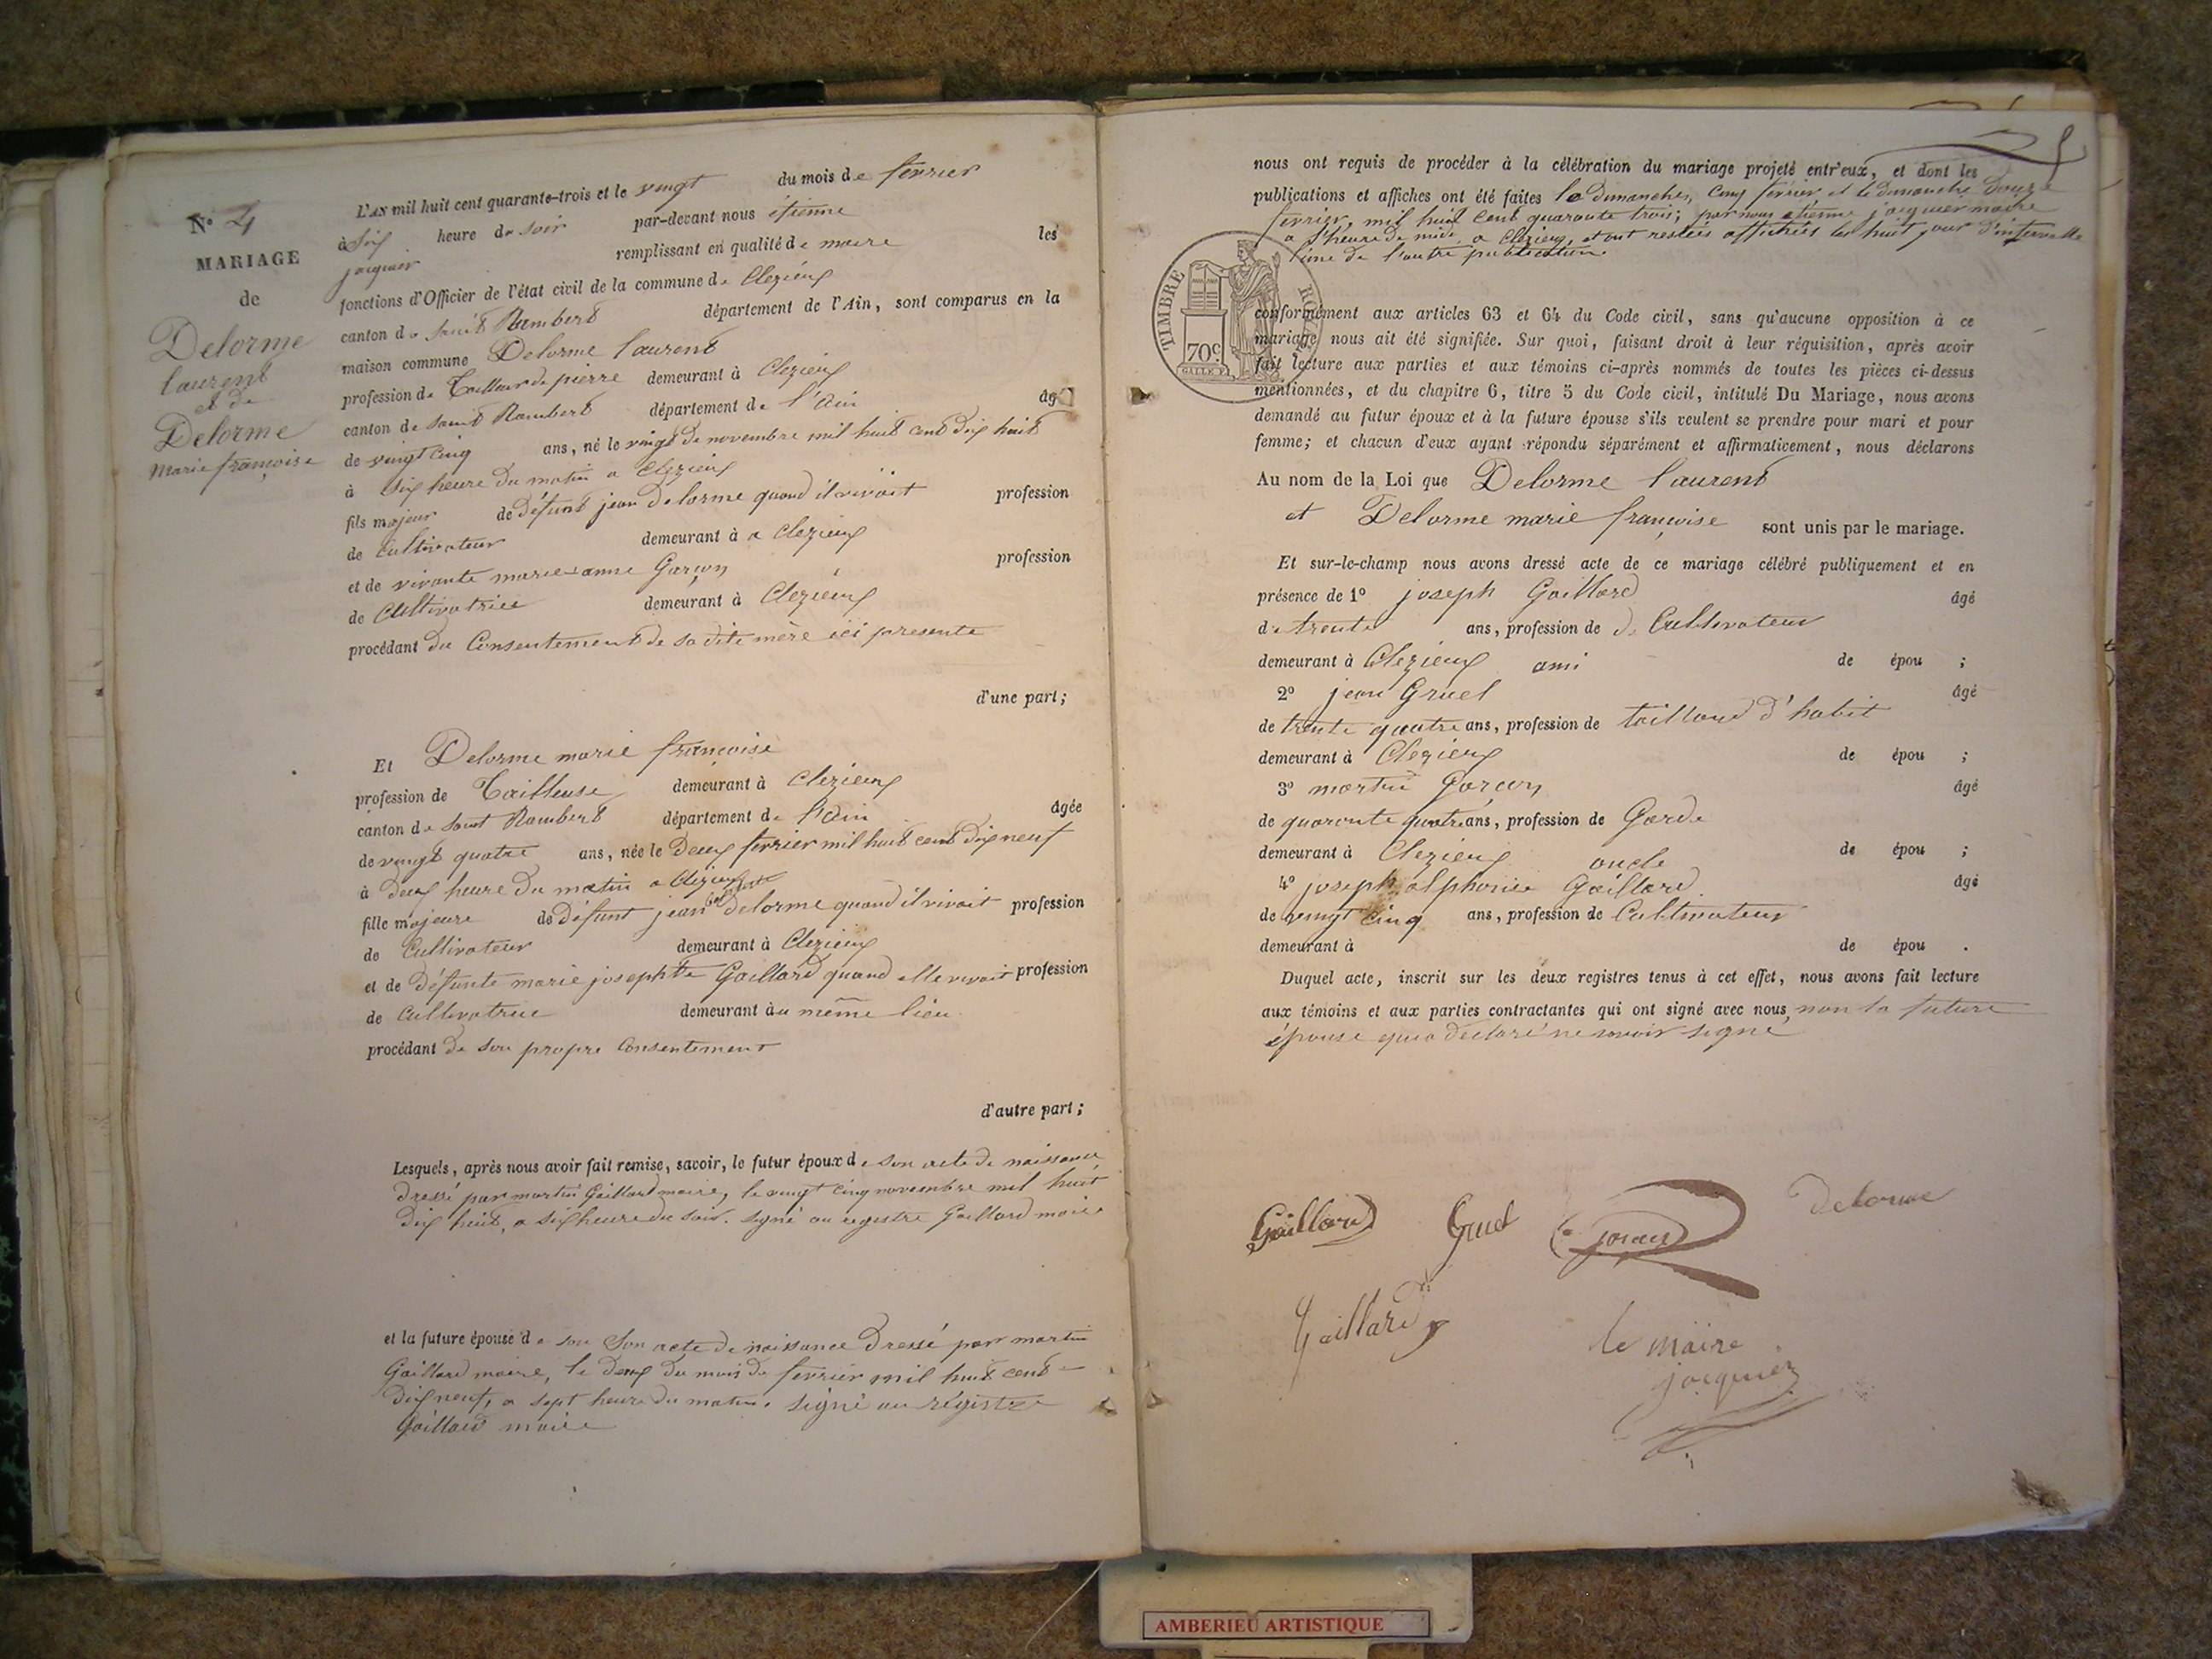 N° 4
MARIAGE
de
Delorme
laurent
et de
Delorme
Marie françoise
L'AN mil huit cent quarante-trois et le vingt du mois de fevrier
à Six heure de soir par-devant nous étienne
jacquier remplissant en qualité de maire les
fonctions d'Officier de l'état civil de la commune de Clezieux
canton de saint Rambert département de l'Ain, sont comparus en la
maison commune Delorme laurent
profession de Tailleur de pierre demeurant à Clezieux
canton de saint Rambert département de l'ain âgé
de vingt cinq ans, né le vingt de novembre mil huit cent dix huit
à Six heure du matin a Clezieux
fils majeur de défunt jean Delorme quand il vivoit profession
de Cultivateur demeurant à a Clezieux
et de vivante marie anne Garçon profession
de Cultivatrice demeurant à Clezieux
procédant du Consentement de sa dite mère ici presente
d'une part;
Et Delorme marie françoise
profession de Tailleuse demeurant à Clezieux
canton de saint Rambert département de l'ain âgée
de vingt quatre ans, née le Deux fevrier mil huit cent dix neuf
à Deux heure du matin a Clezieux
fille majeure de défunt jean Delorme quand il vivoit profession
de Cultivateur demeurant à Clezieux
et de défunte marie josephte Gaillard quand elle vivoit profession
de Cultivatrice demeurant à u même lieu
procédant de son propre Consentement
d'autre part;
Lesquels, après nous avoir fait remise, savoir, le futur époux d e son acte de naissance
dressé par martin Gaillard maire, le vingt cinq novembre mil huit
dix huit, a six heure du soir. signé au registre Gaillard maire
et la future épouse d e son Son acte de naissance Dressé par martin
Gaillard maire, le deux du mois de fevrier mil huit cent
dix neuf, a sept heure du matin. signé au régistre
Gaillard maire
nous ont requis de procéder à la célébration du mariage projeté entr'eux, et dont les
publications et affiches ont été faites le dimanche, cinq fevrier et le dimanche douze
fevrier, mil huit cent quarante trois; par nous etienne jacquier maire
a l'heure de midi a Clezieux, et ont restées affichées les huit jour d'intervalle
l'une de l'autre publication
TIMBRE ROYAL
70c
conformément aux articles 63 et 64 du Code civil, sans qu'aucune opposition à ce
mariage nous ait été signifiée. Sur quoi, faisant droit à leur réquisition, après avoir
fait lecture aux parties et aux témoins ci-après nommés de toutes les pièces ci-dessus
mentionnées, et du chapitre 6, titre 5 du Code civil, intitulé Du Mariage, nous avons
demandé au futur époux et à la future épouse s'ils veulent se prendre pour mari et pour
femme; et chacun d'eux ayant répondu séparément et affirmativement, nous déclarons
Au nom de la Loi que Delorme laurent
et Delorme marie françoise sont unis par le mariage.
Et sur-le-champ nous avons dressé acte de ce mariage célébré publiquement et en
présence de 1° joseph Gaillard âgé
de trente ans, profession de de Cultivateur
demeurant à Clezieux ami de épou ;
2° jean Gruel âgé
de trente quatre ans, profession de tailleur d'habit
demeurant à Clezieux de épou ;
3° martin Garçon âgé
de quarante quatre ans, profession de Garde
demeurant à Clezieux oncle de épou ;
4° joseph alphonse Gaillard âgé
de vingt cinq ans, profession de Cultivateur
demeurant à de épou .
Duquel acte, inscrit sur les deux registres tenus à cet effet, nous avons fait lecture
aux témoins et aux parties contractantes qui ont signé avec nous, non la future
épouse qui a déclaré ne savoir signé
Gaillard Gruel Delorme
Gaillard le maire
jacquier
AMBERIEU ARTISTIQUE